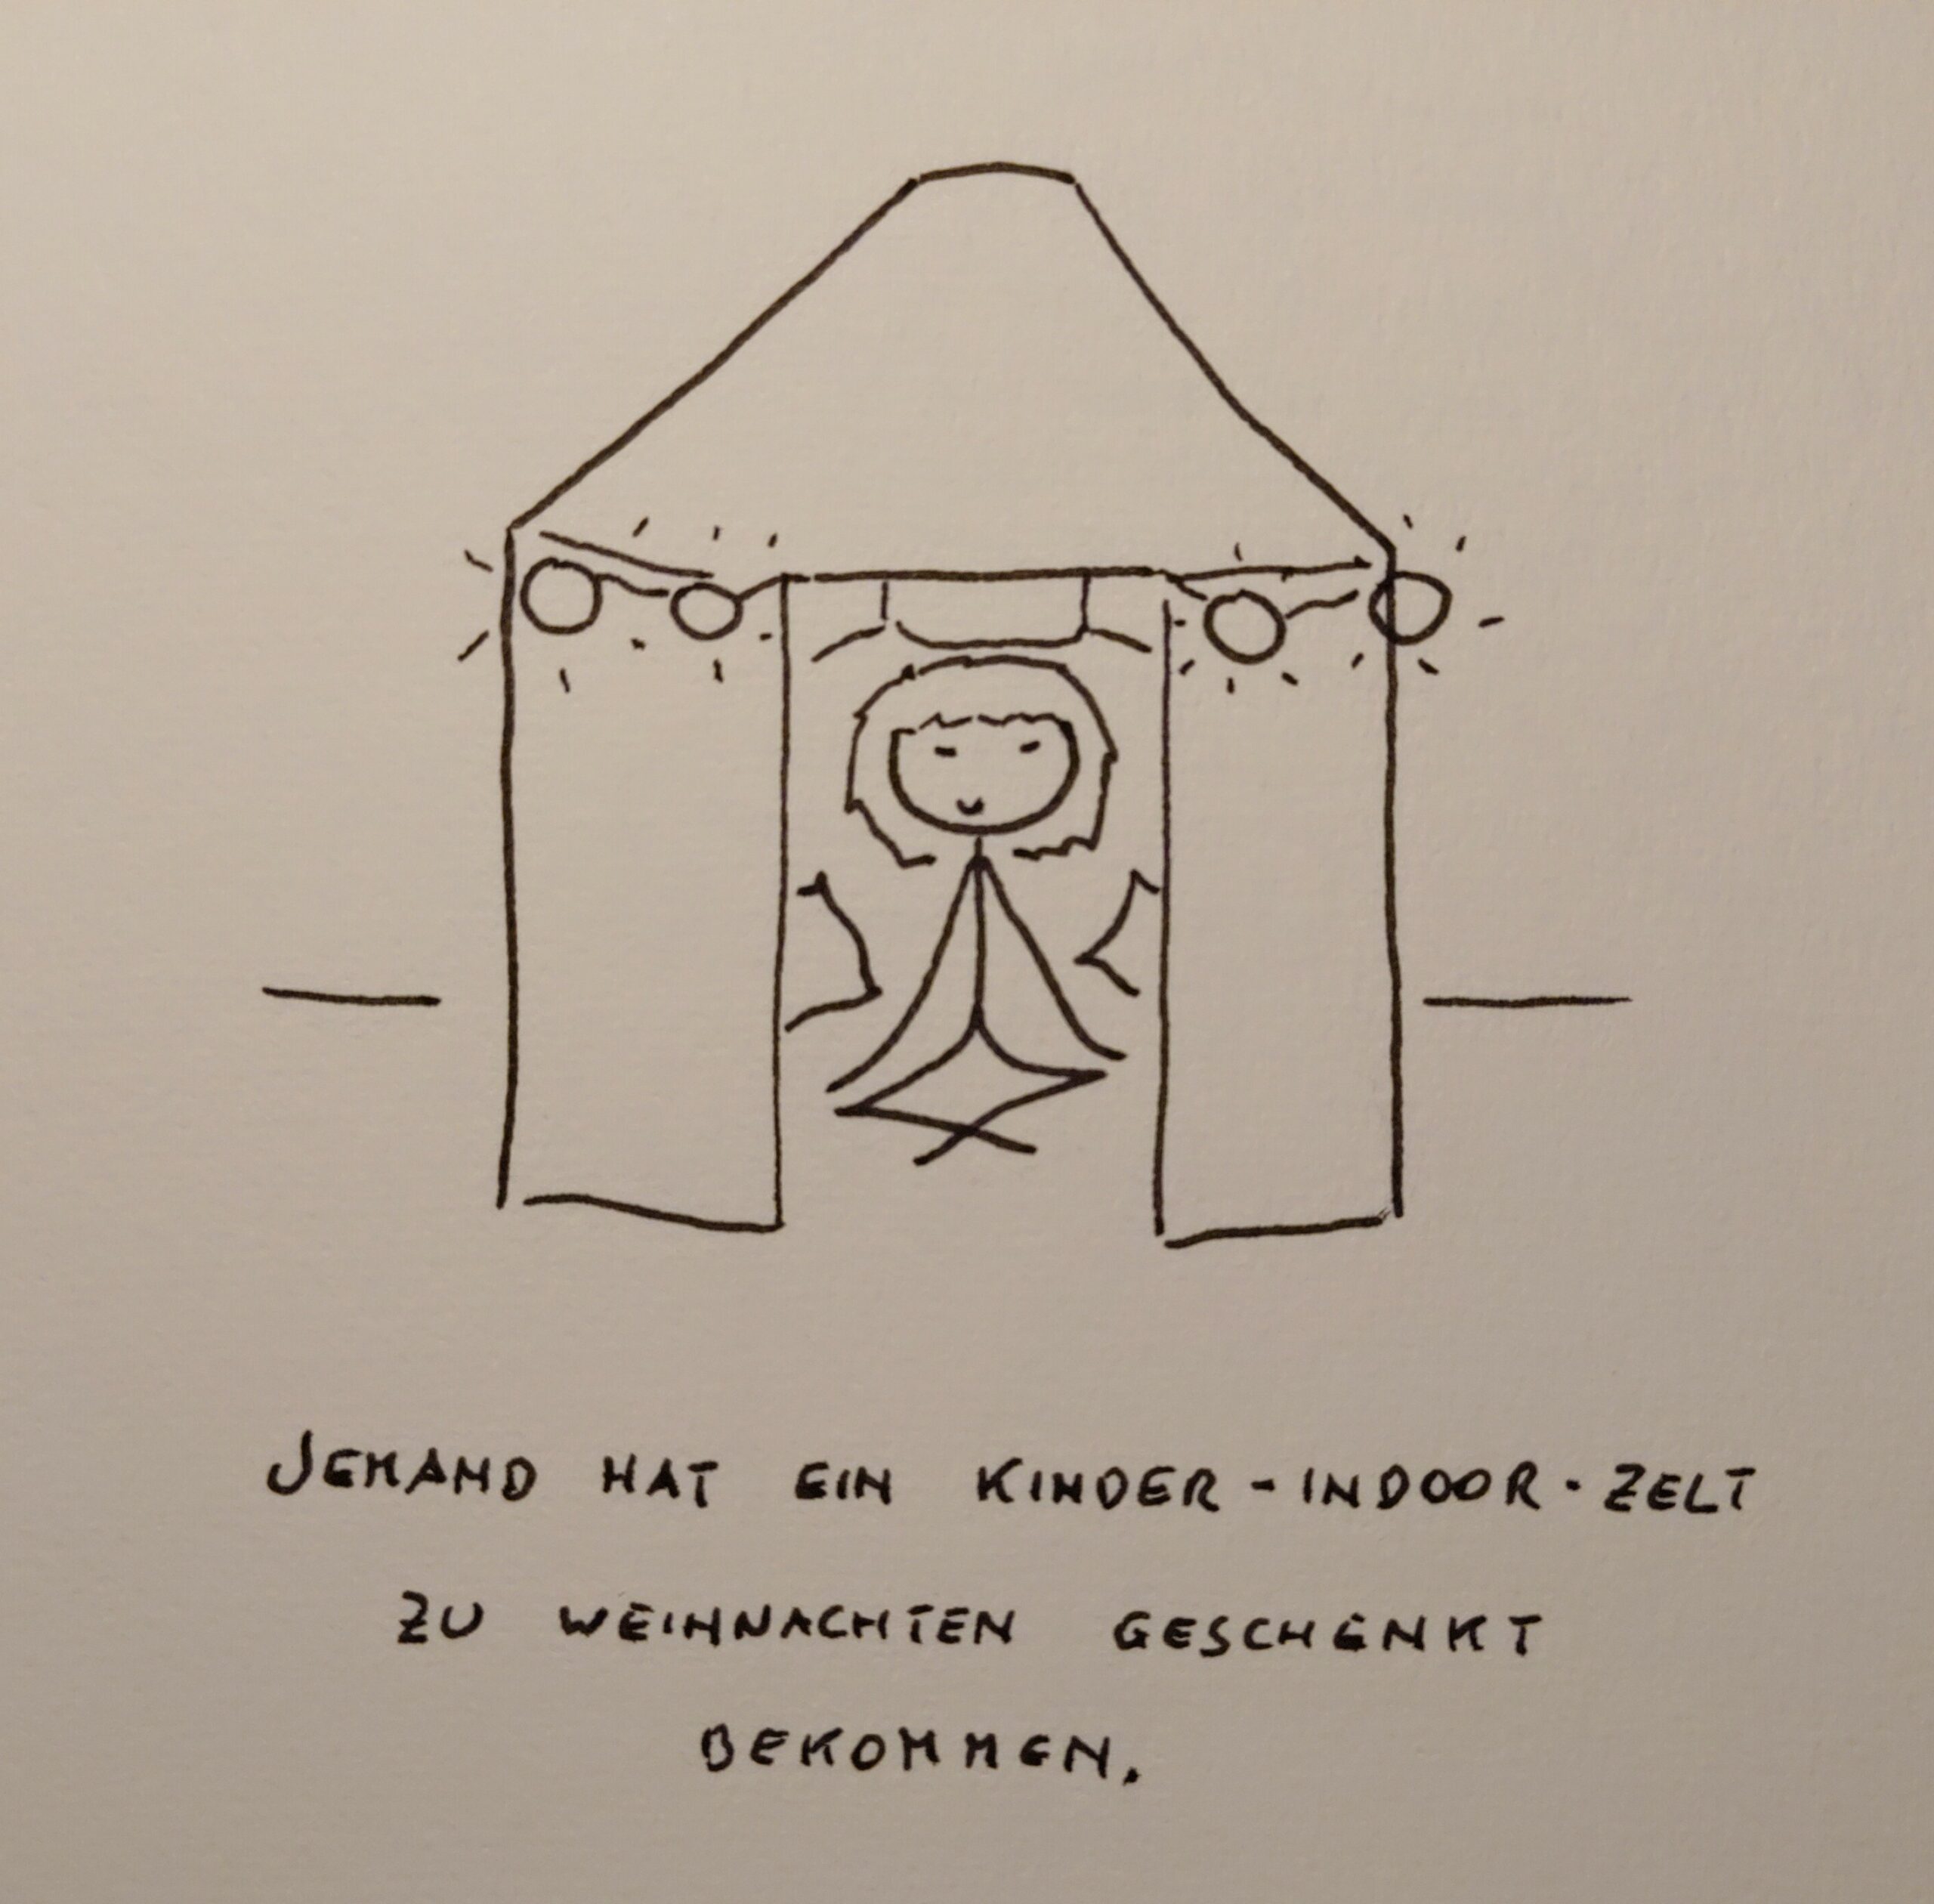 JEMAND HAT EIN KINDER-INDOOR-ZELT
ZU WEIHNACHTEN GESCHENKT
BEKOMMEN.